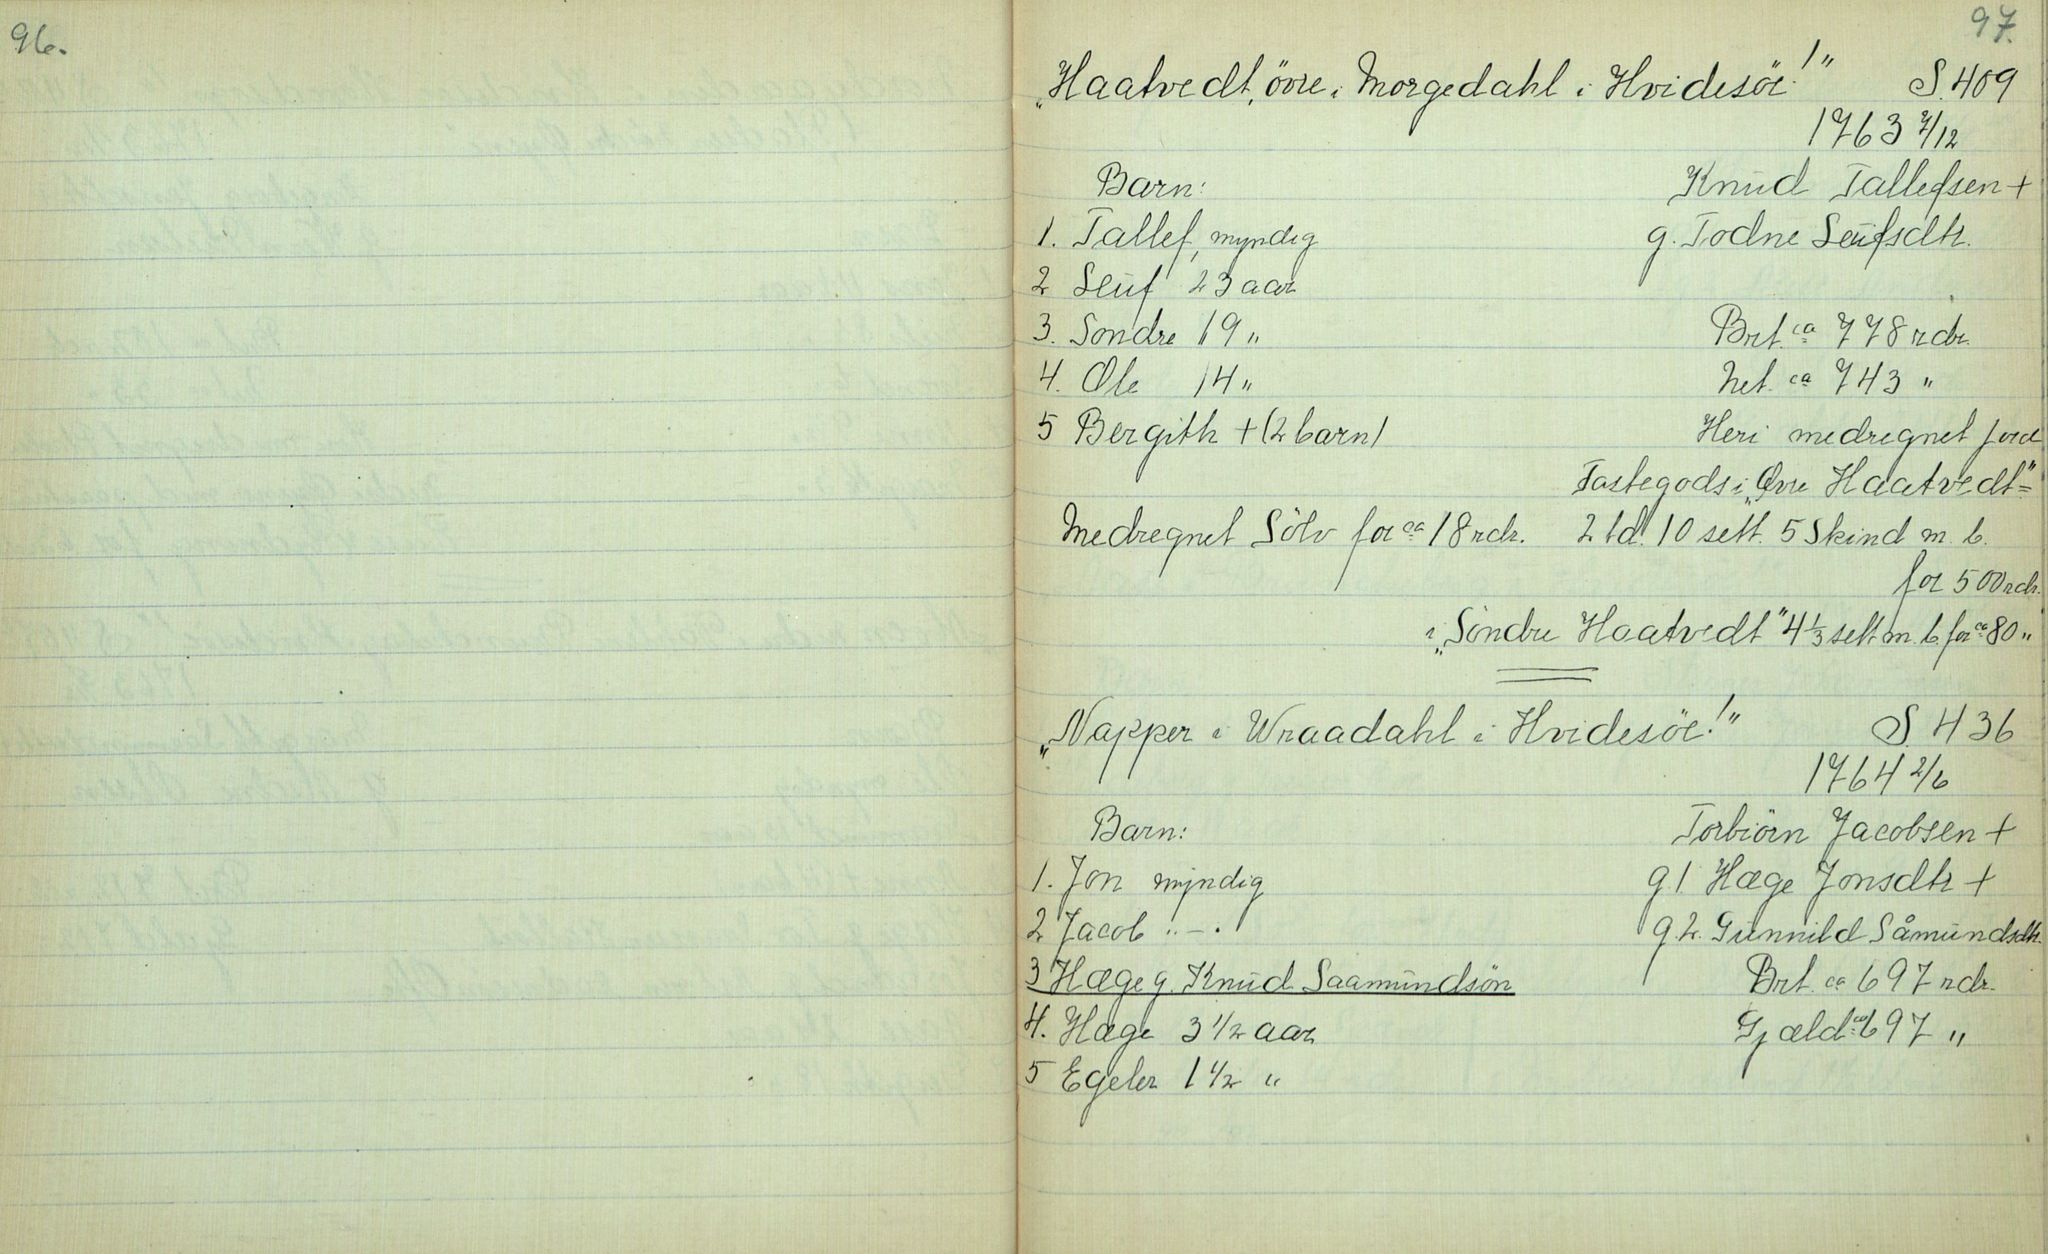 96.
97.
„Haatvedt, övre i Morgedahl i Hvidesöe!" S. 409
1763 7/12
Barn: Knud Tallefsen +
1. Tallef, myndig g. Todne Leufsdtr.
2 Leuf 23 aar
3. Sondre 19 „ Brt. ca 778 rdr.
4. Ole 14 „ Net. ca 743 "
5 Bergith + (2 barn) Heri medregnet jord
Fastegods i „Øvre Haatvedt" =
Medregnet Sölv for ca 18 rdr. 2 td. 10 sett. 5 Skind m. b.
for 500 rdr.
i „Söndre Haatvedt" 4 1/3 sett. m. b. for ca 80 „
„Napper i Wraadahl i Hvidesöe!" S. 436
1764 2/6
Barn: Torbiörn Jacobsen +
1. Jon myndig g. 1 Hæge Jonsdtr +
2 Jacob „ - . g. 2. Gunnild Såmundsdtr.
3 Hæge g. Knud Saamundsön Brt. ca 697 rdr.
4. Hæge 3 1/2 aar Gjæld ca 697 „
5 Egeler 1 1/2 „